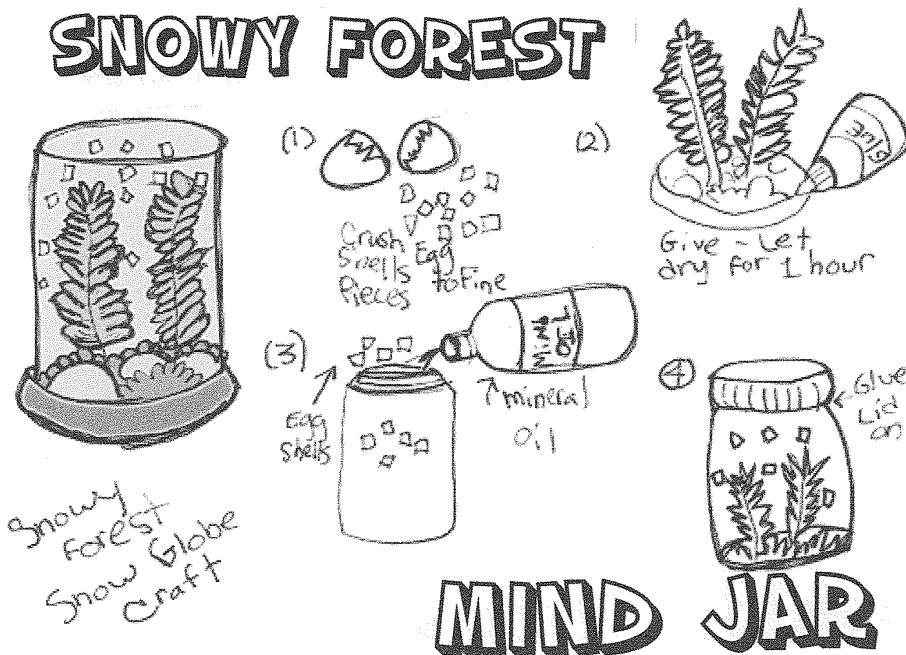 SNOWY FOREST
(1)
Crush Egg
Shells to Fine
Pieces
(2)
GLUE
Give - Let
dry for 1 hour
(3)
Egg
Shells
MINA
OIL
mineral
oil
4
Glue
Lid
on
Snowy
Forest
Snow Globe
Craft
MIND JAR